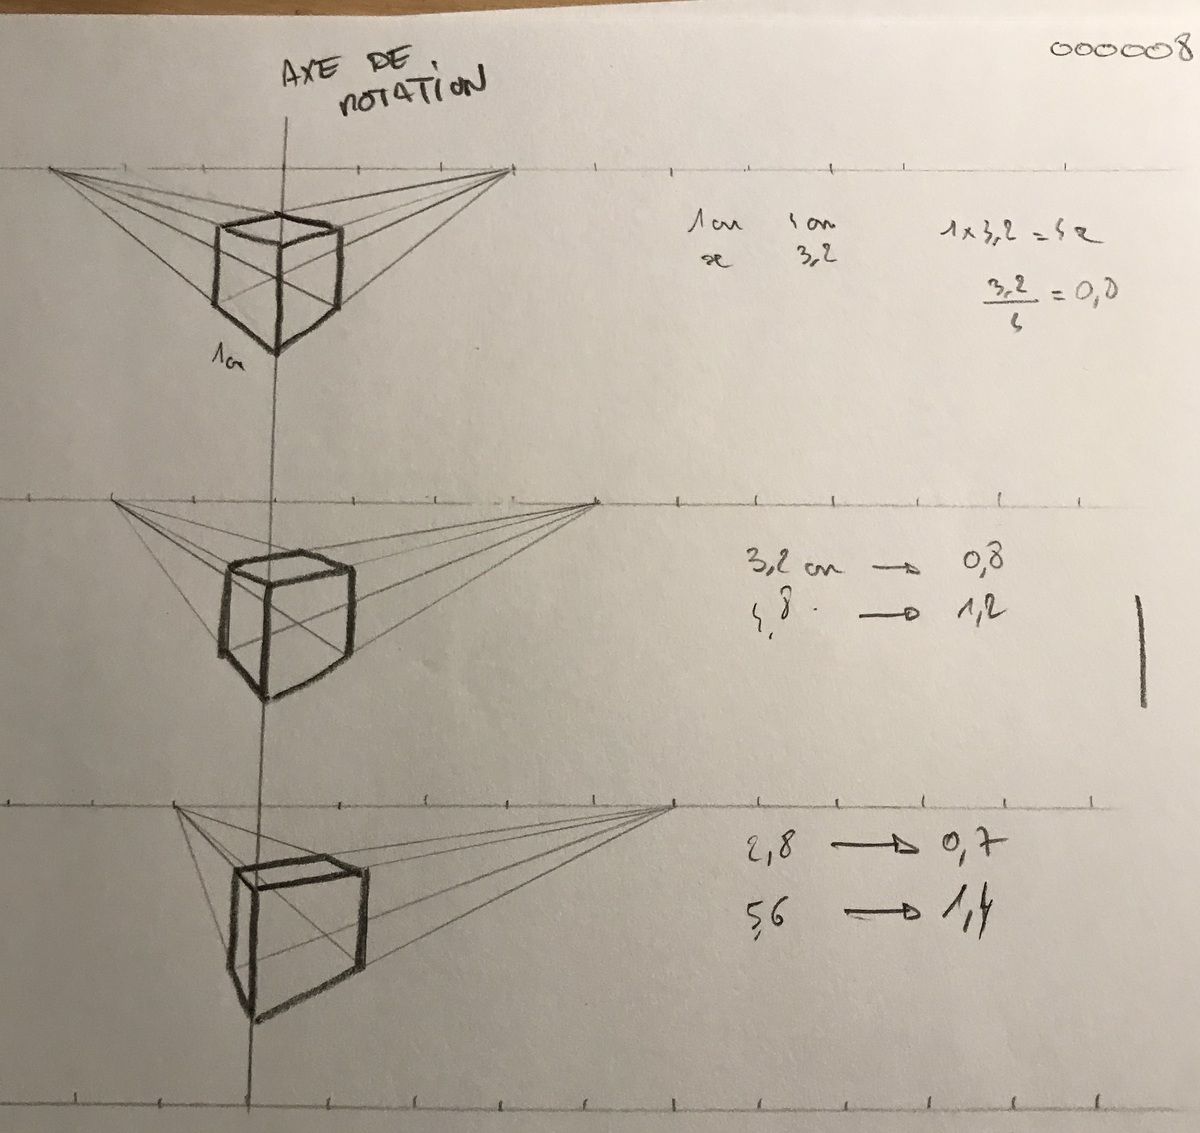 000008
AXE DE
ROTATION
1cm 4cm 1x3,2 = 4x
x 3,2
3,2/4 = 0,8
1cm
3,2 cm → 0,8
4,8 → 1,2
2,8 → 0,7
5,6 → 1,4